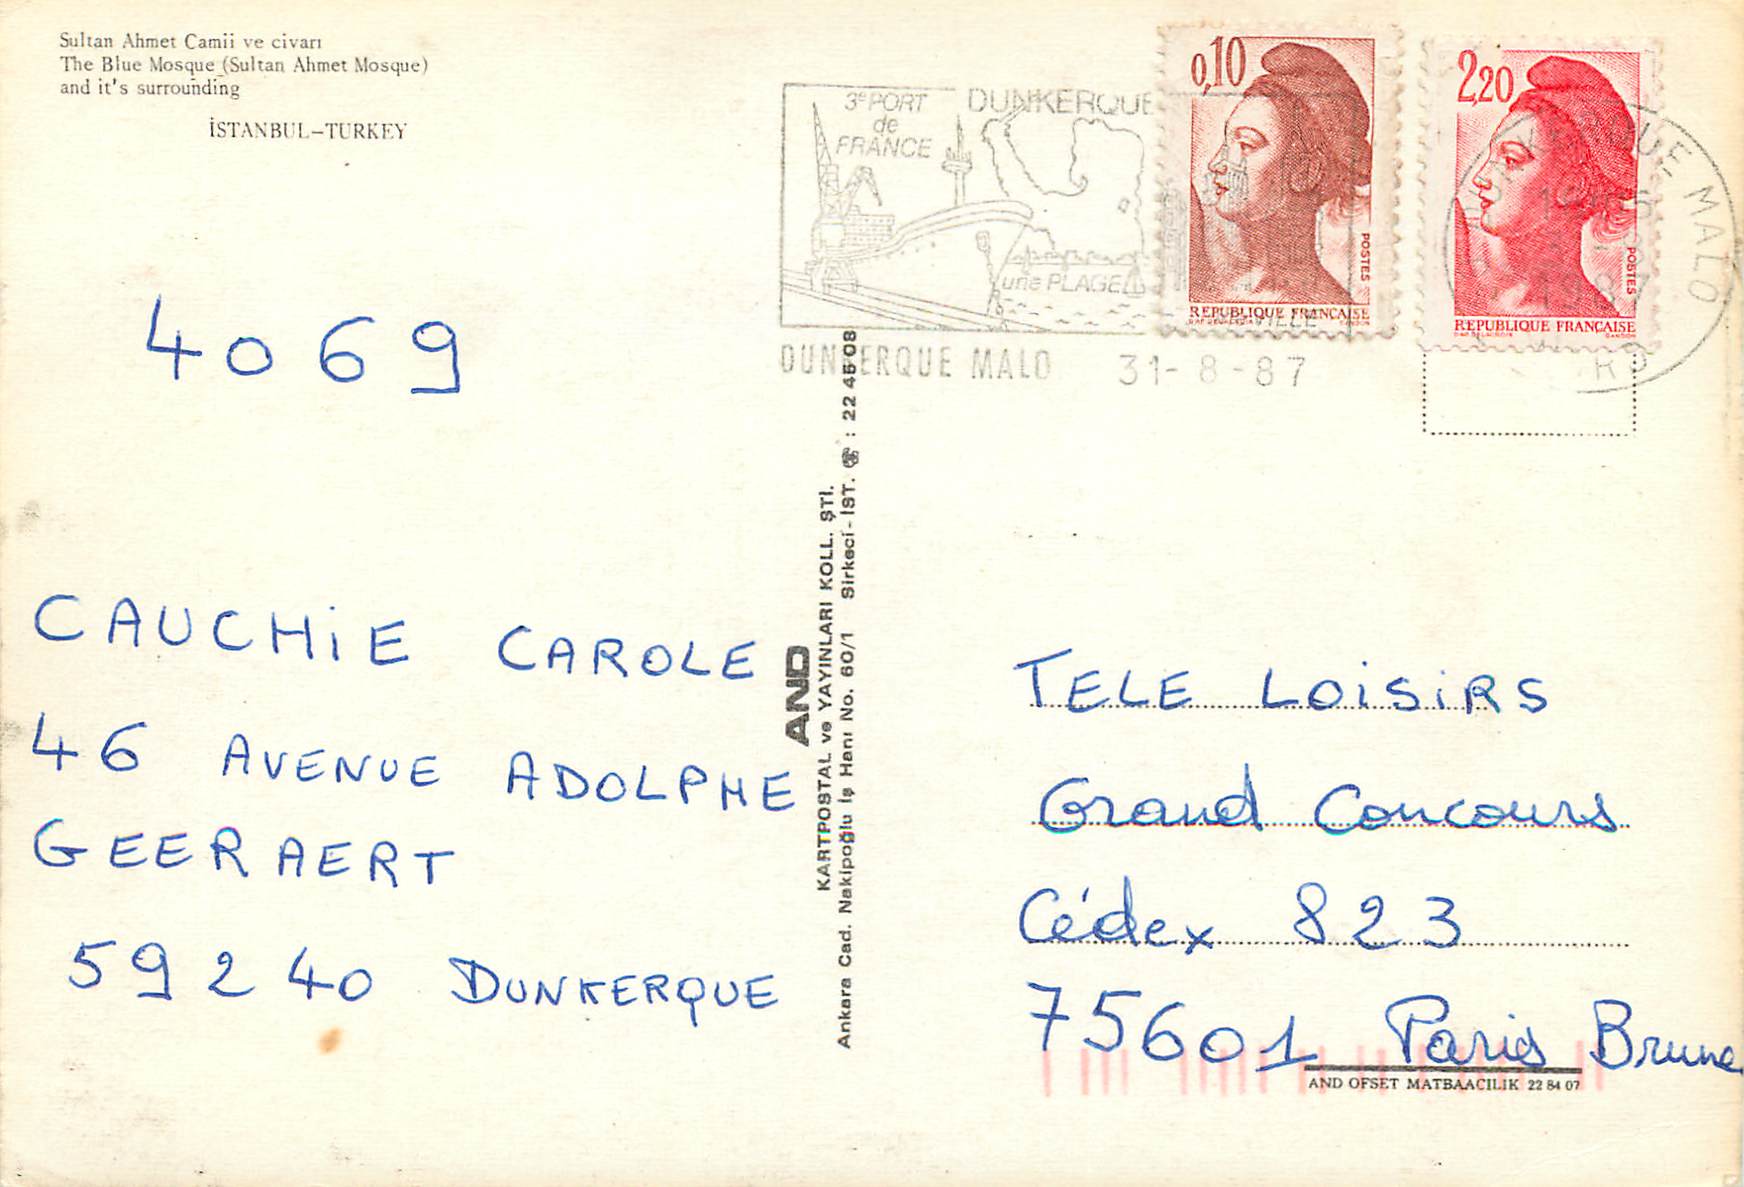 Sultan Ahmet Camii ve civarı
The Blue Mosque (Sultan Ahmet Mosque)
and it's surrounding
İSTANBUL-TURKEY
3e PORT
de
FRANCE
DUNKERQUE
une PLAGE
VILLE
DUNKERQUE MALO 31-8-87
0,10
POSTES
REPUBLIQUE FRANÇAISE
2,20
POSTES
REPUBLIQUE FRANÇAISE
MALO
1987
4069
CAUCHiE CAROLE
46 AVENUE ADOLPHE
GEERAERT
59240 DUNKERQUE
AND
KARTPOSTAL ve YAYINLARI KOLL. ŞTİ.
Ankara Cad. Nakipoğlu İş Hanı No. 60/1 Sirkeci-İST. ☎ : 22 45 08
TELE LOiSiRS
Grand Concours
Cédex 823
75601 Paris Brune
AND OFSET MATBAACILIK 22 84 07